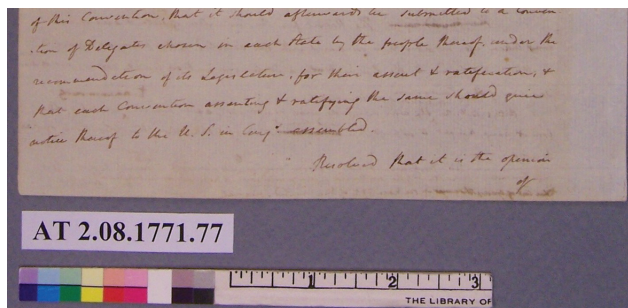 of this Convention, that it should afterwards be submitted to a conven
tion of Delegates chosen in each State by the people thereof, under the
recommendation of its Legislature, for their assent & ratification, &
that each Convention assenting & ratifying the same should give
notice thereof to the U. S. in Cong: assembled.
Resolved that it is the opinion
of
AT 2.08.1771.77
1 2 3
THE LIBRARY OF